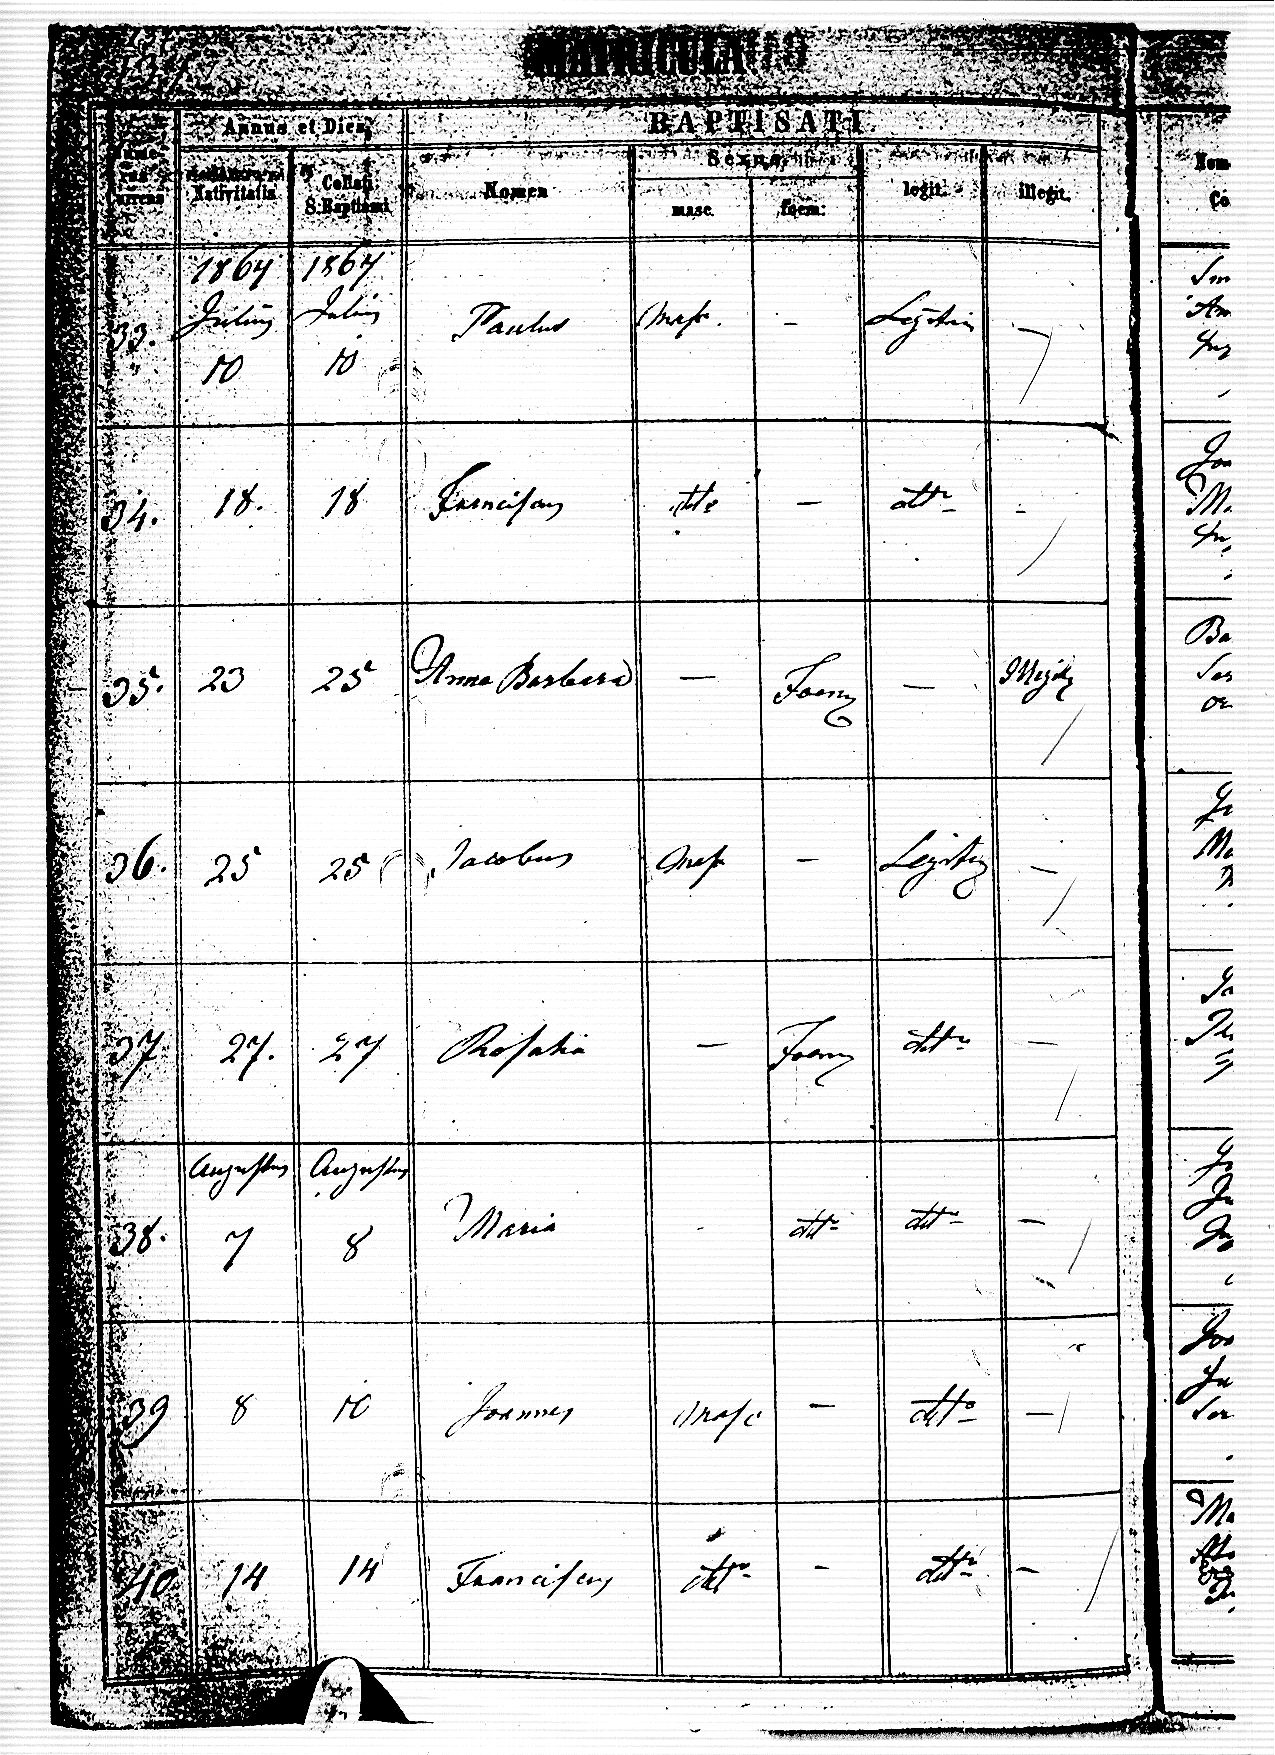 MATRICULA
Nume-
rus
Currens
Annus et Dies
Nativitatis
Collati
S. Baptismi
BAPTISATI
Nomen
Sexus
masc.
foem:
legit.
illegit.
Nom
Co
1864 1864
Julius Julius
33. 10 10 Paulus Masc. – Legitim –
34. 18. 18 Franciscus dtto – dtto –
35. 23 25 Anna Barbara — Foem — Illegit
36. 25 25 Jacobus Masc – Legitim –
37 27. 27 Rosalia – Foem dtto –
Augustus Augustus
38. 7 8 Maria - dtto dtto –
39 8 10 Joannes Masc – dtto –
40 14 14 Franciscus dtto – dtto –